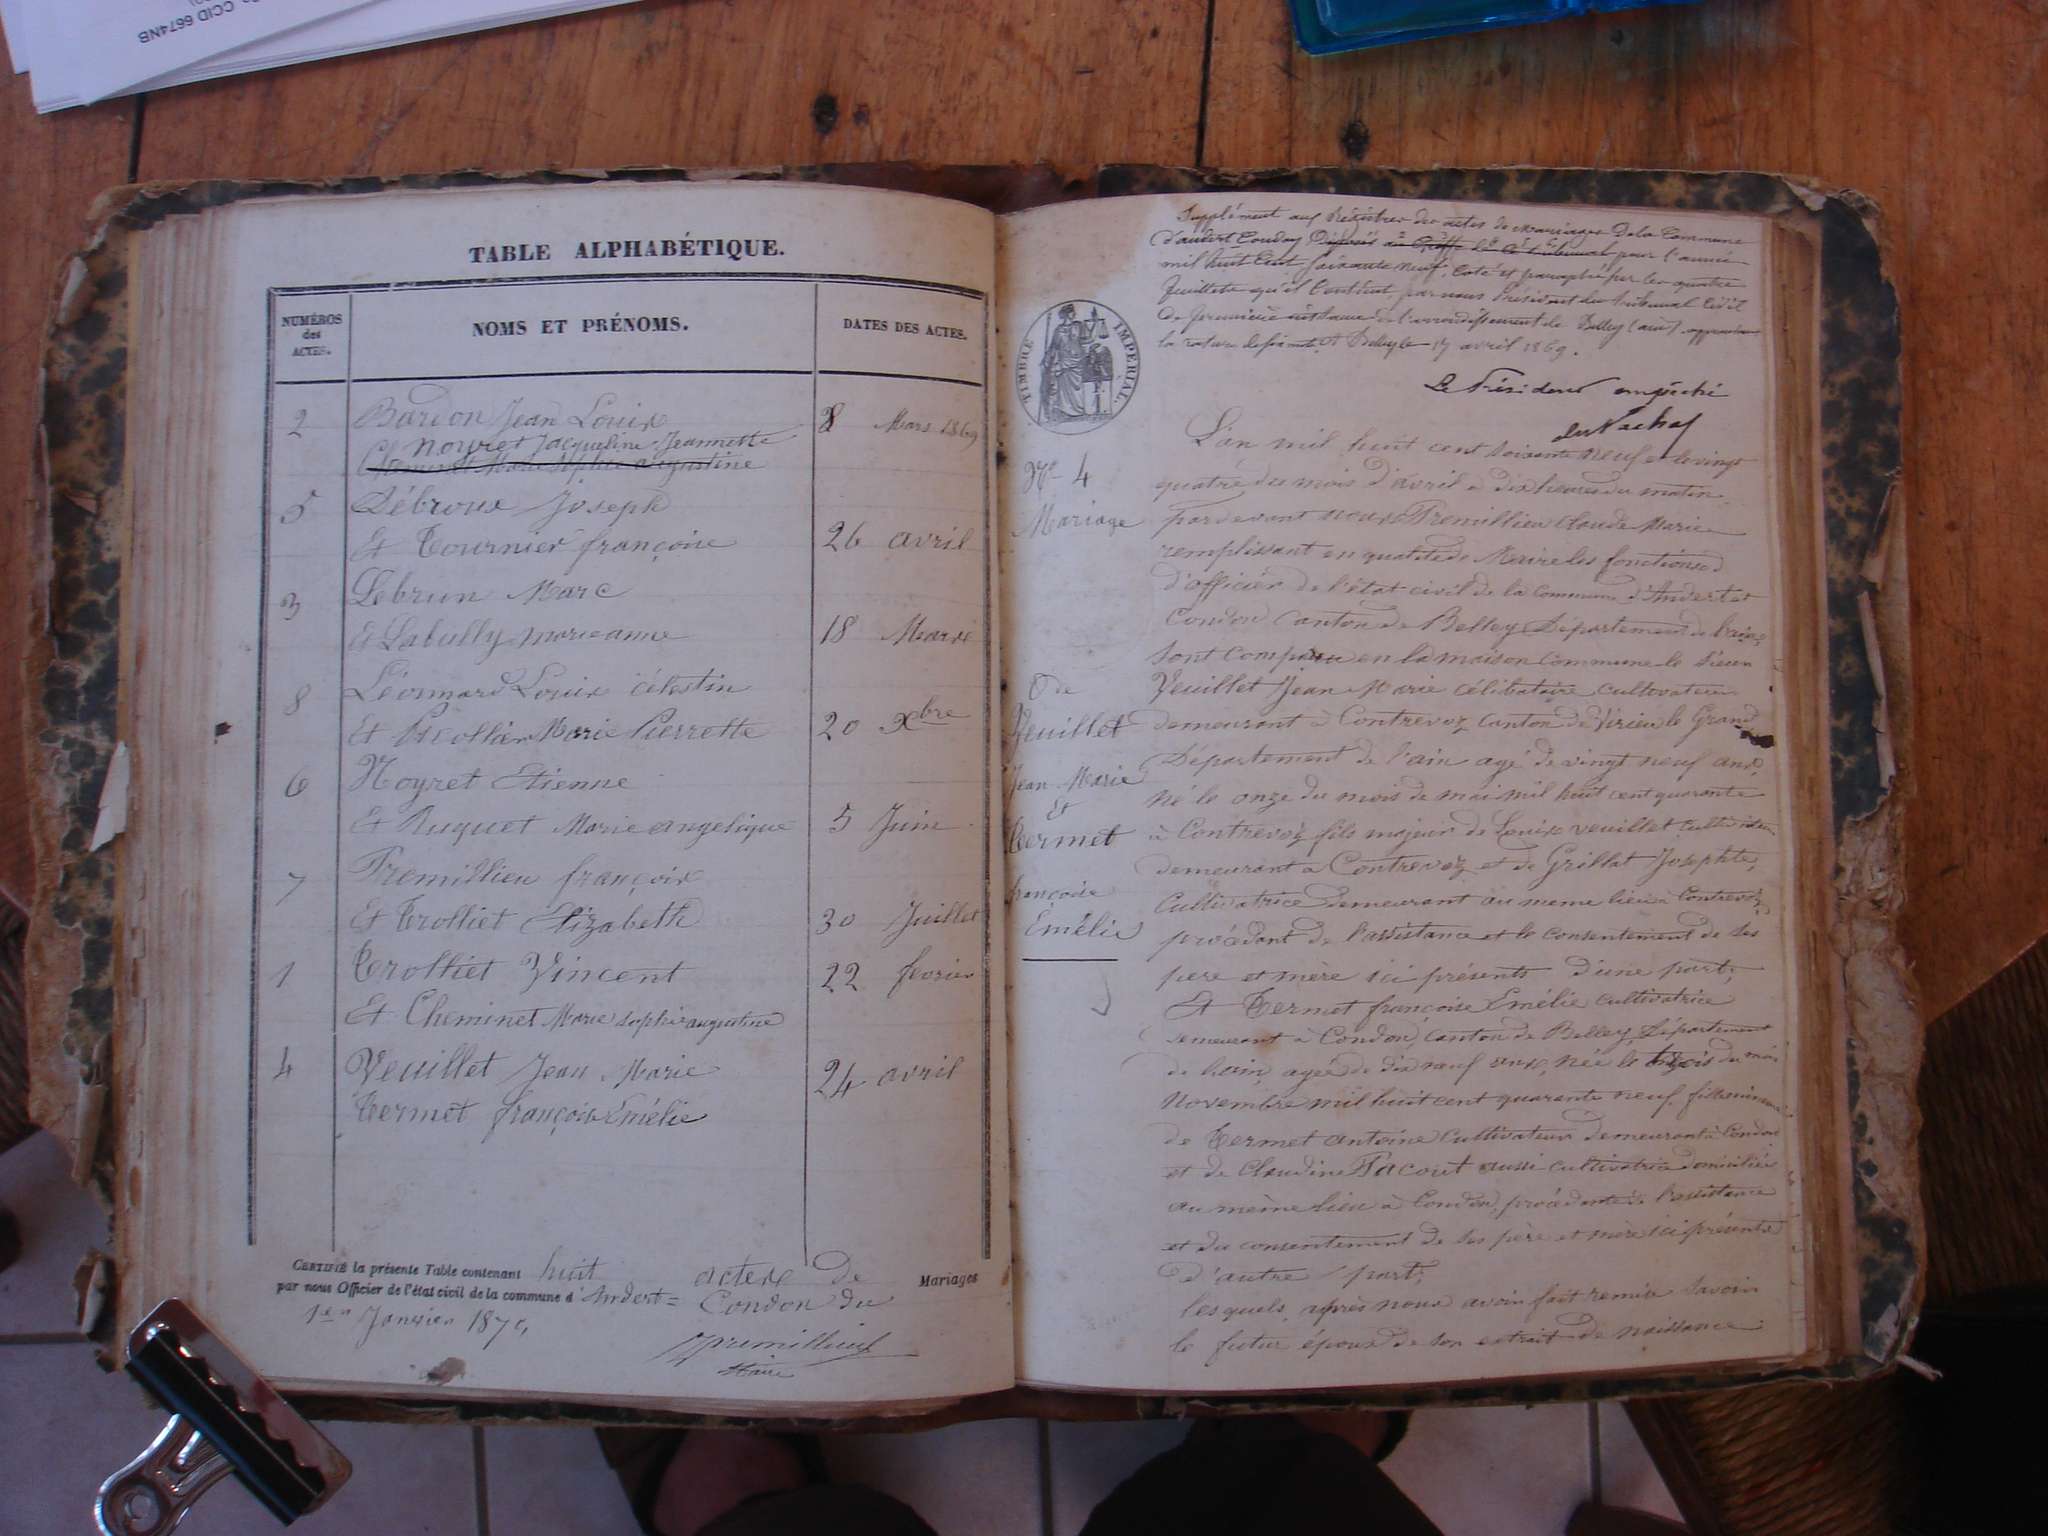 CCID 6674NB
TABLE ALPHABÉTIQUE.
NUMÉROS
des
ACTES.
NOMS ET PRÉNOMS.
DATES DES ACTES.
2 Bardon Jean Louis 8 Mars 1869
Et Noyret Jacqueline Jeannette
Cheminet Marie Sophie augustine
5 Débroux Joseph
Et Tournier françoise 26 avril
3 Lebrun Marc
Et Labully marie anne 18 Mars
8 Léonnard Louis célestin
Et Marie Pierrette 20 Xbre
6 Noyret Etienne
Et Ruguet Marie angelique 5 Juin
7 Premillieu françois
Et Trolliet Elizabeth 30 Juillet
1 Trolliet Vincent 22 fevrier
Et Cheminet Marie sophie augustine
4 Veuillet Jean Marie 24 avril
Termet françoise Emélie
CERTIFIÉ la présente Table contenant huit actes de Mariages
par nous Officier de l'état civil de la commune d'Andert = Condon du
1er Janvier 1870,
Premillieu
Maire
Supplément aux Registres des actes de mariages De la Commune
d'andert Condon Déposés au Greffe du tribunal pour l'année
mil huit Cent soixante neuf, Coté et paraphé par les quatre
feuillets qu'il Contient, par nous Président du tribunal Civil
De première instance de l'arrondissement de Belley (ain)
la rature A Belley le 17 avril 1869.
Le Président empêché
TIMBRE IMPERIAL.
N° 4
Mariage
De
Veuillet
Jean Marie
Et
Termet
françoise
Emélie
L'an mil huit cent soixante neuf et le vingt
quatre du mois d'avril à dix heures du matin
pardevant nous Premillieu Claude Marie
remplissant en qualité de Maire les fonctions
d'officier de l'état civil de la commune d'Andert et
Condon Canton de Belley Département de l'ain,
sont comparu en la maison commune le sieur
Veuillet Jean Marie célibataire cultivateur
demeurant à Contrevoz canton de Virieu le Grand
Département de l'ain agé de vingt neuf ans,
né le onze du mois de mai mil huit cent quarante
à Contrevoz fils majeur de Louis veuillet cultivateur
demeurant à Contrevoz et de Grillat Josephte,
Cultivatrice demeurant au meme lieu à Contrevoz,
procédant de l'assistance et le consentement de ses
pere et mère ici présents d'une part,
Et Termet françoise Emélie cultivatrice
demeurant à Condon, canton de Belley, Département
de l'ain, agée de dix neuf ans, née le trois du mois
Novembre mil huit cent quarante neuf, fille mineure
de Termet antoine Cultivateur demeurant à Condon
et de Claudine Tacout aussi cultivatrice domiciliée
au même lieu à Condon, procédante de l'assistance
et du consentement de ses père et mère ici présents
d'autre part,
lesquels, après nous avoir fait remise savoir
le futur époux de son extrait de naissance